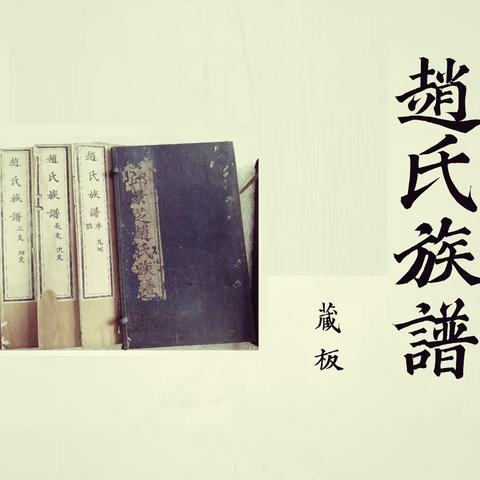 趙氏族譜
藏板
景芝趙氏族譜
趙氏族譜 序 凡例
趙氏族譜 長支 次支
趙氏族譜 三支 四支